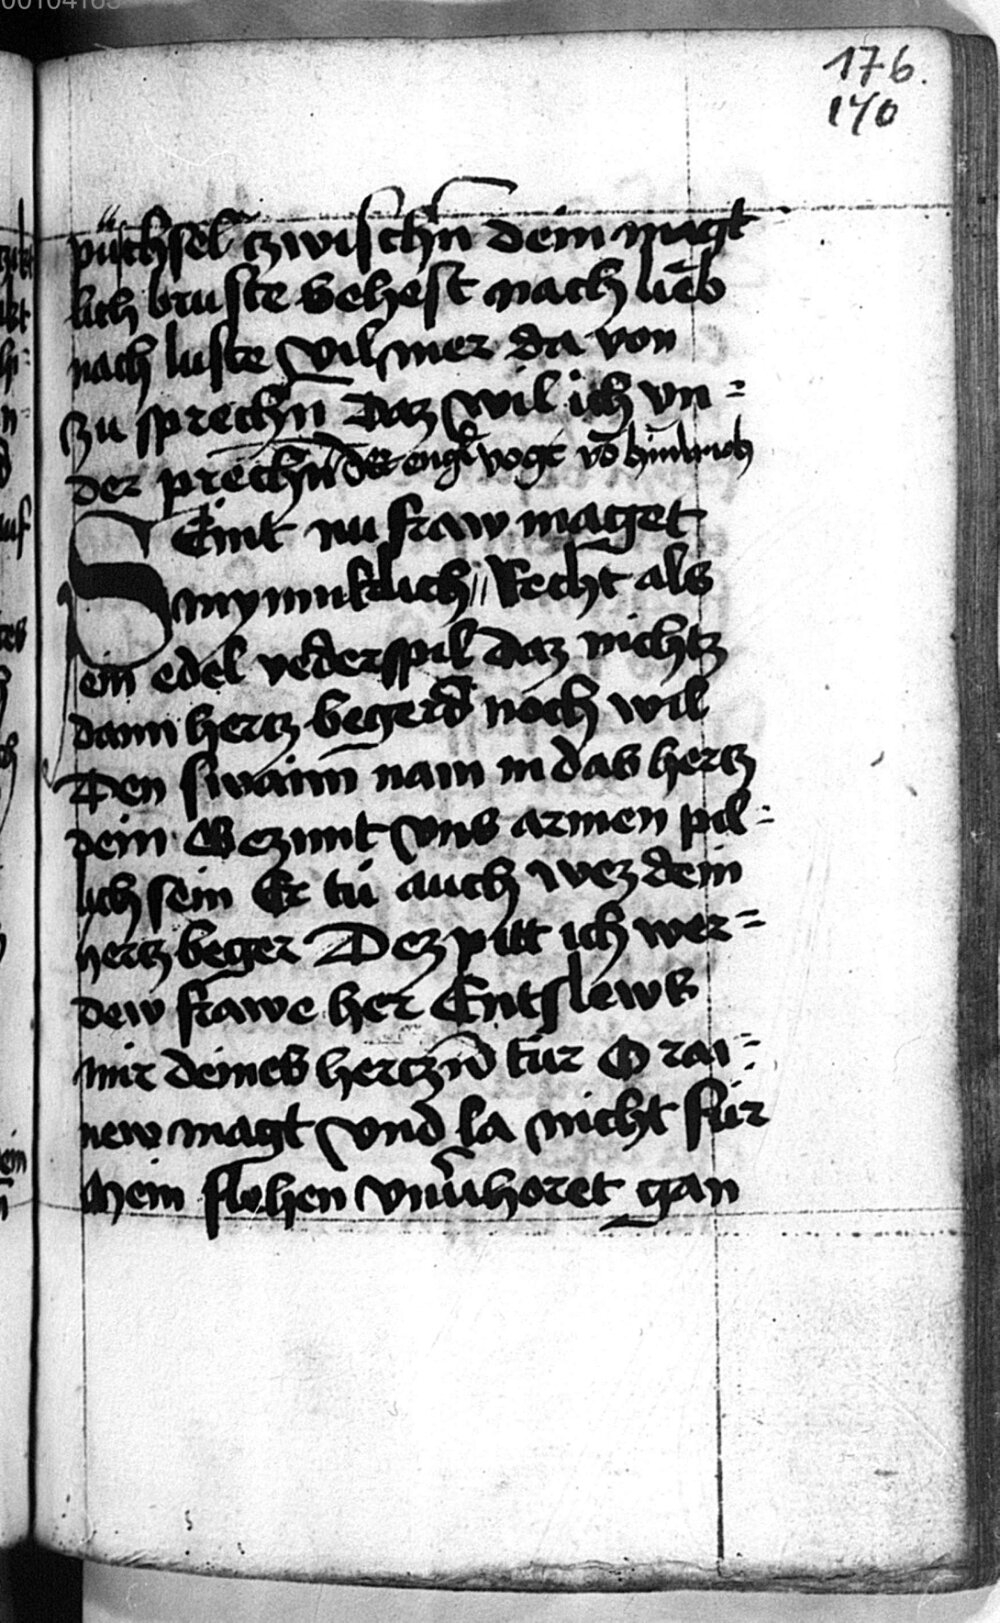 176.
170
püchsel czwischn̄ dein magt
lich bruste Sehest nach lieb
nach luste Vil mer da von
zu sprechn̄ Daz wil ich vn=
der prechn̄ d engl vogt vō himlrich
SEint nu fraw maget
mynniklich Recht als
ein edel vederspil daz nichtz
dann hercz begerd noch wil
Den swaim nam in das hercz
dein Gezimt vns armen pil=
lich sein Er tü auch wez dein
hercz beger Dez pitt ich wer=
dew frawe her Entslews
mir deines herczn̄ tür O rai=
new magt vnd la nicht für
Mein flehen vnuhoret gan